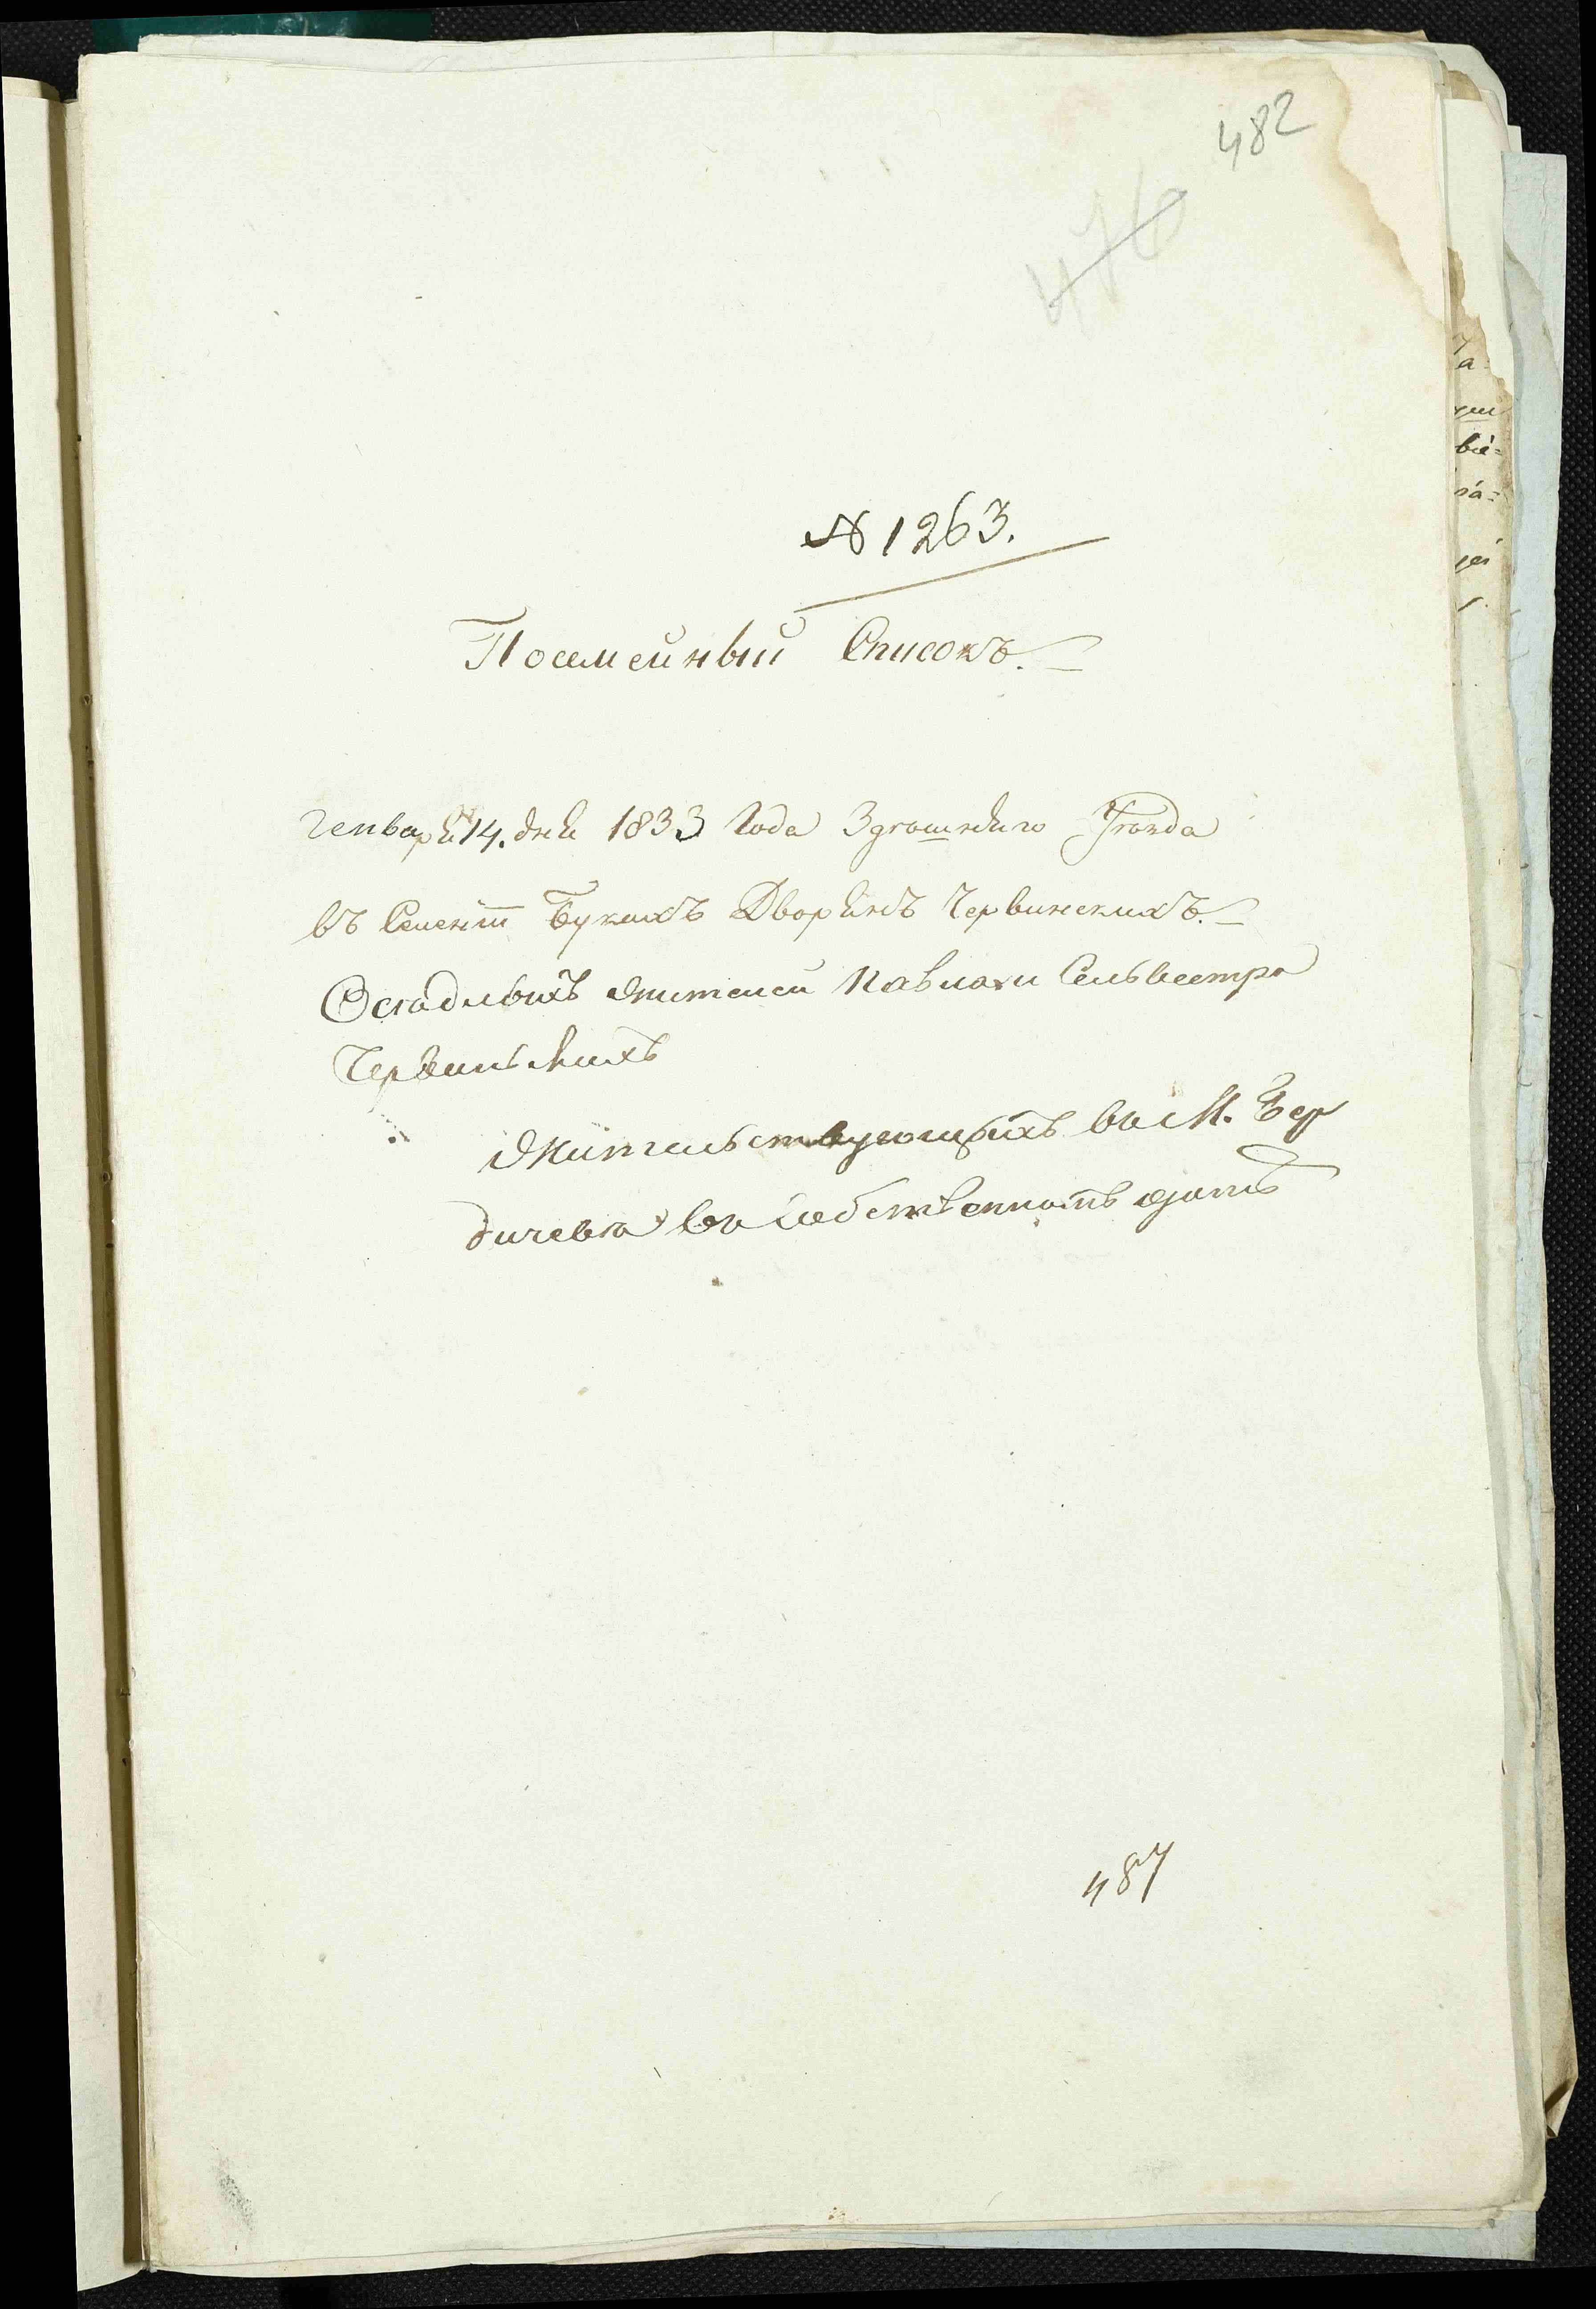 482
476
№ 1263.
Посемейный Списокъ.
Генваря 14. дня 1833 Года Здешняго Уезда
въ Селенiи Букахъ Дворянъ Червинскихъ.
Оседлыхъ жителей Павла и Сельвестра
Червинскихъ
Жительствующихъ въ М. Бер
дичева въ собственномъ доме
487